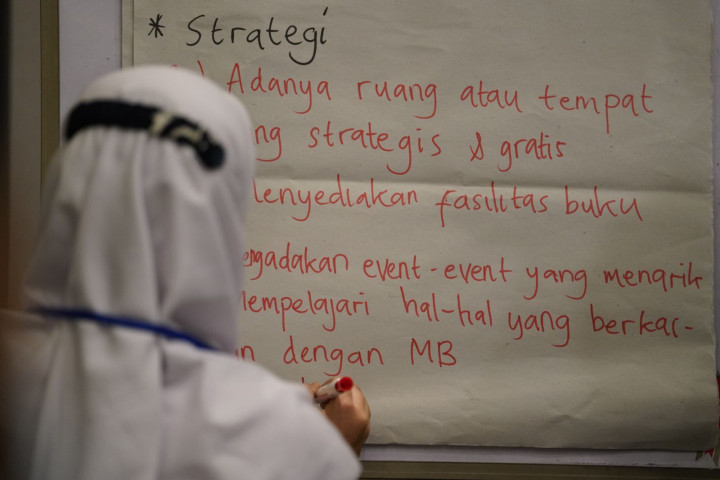 * Strategi
) Adanya ruang atau tempat
ng strategis & gratis
lenyediakan fasilitas buku
egadakan event-event yang menarik
lempelajari hal-hal yang berkac-
n dengan MB